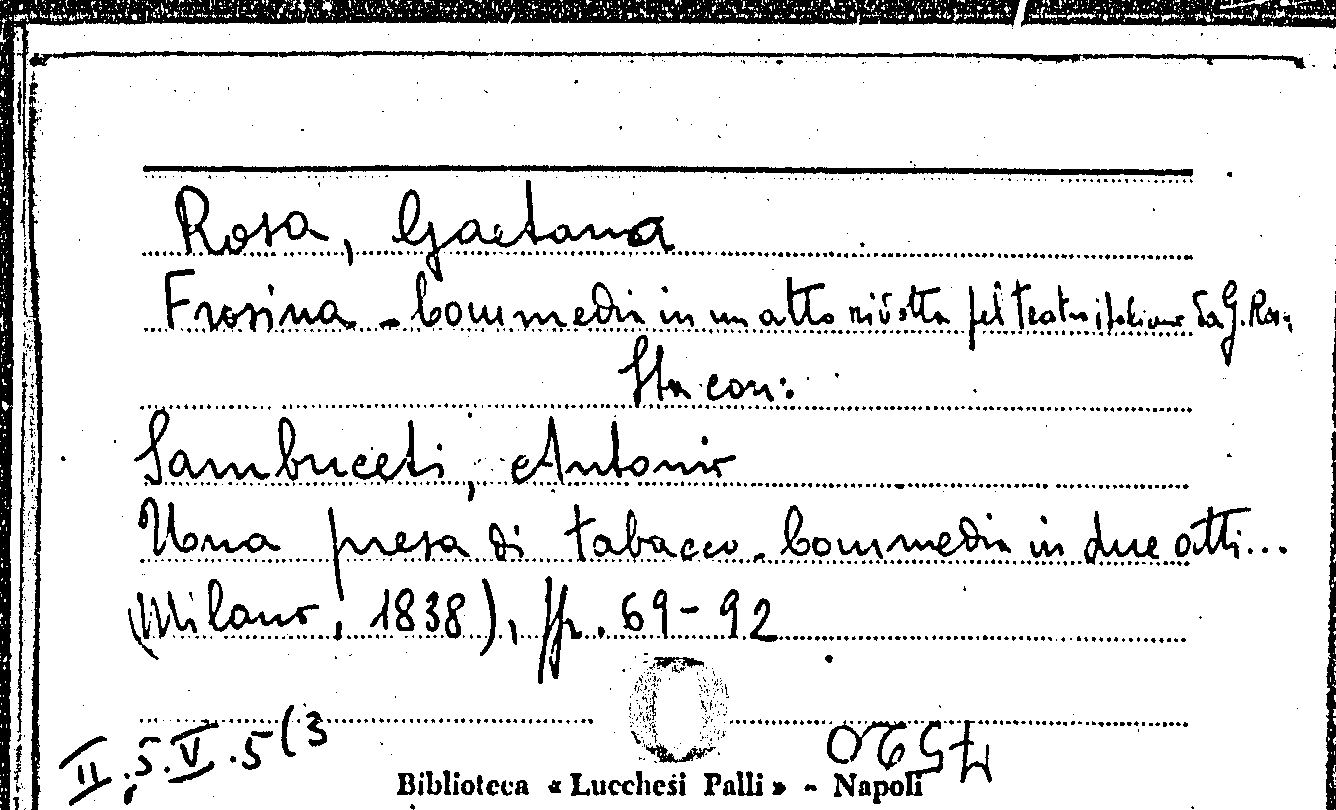 Rosa, Gaetana
Frosina - Commedia in un atto ridotta pel teatro italiano da G. Rosa
Sta con:
Sambuceti, Antonio
Una presa di tabacco. Commedia in due atti...
(Milano, 1838), pp. 69-92
II.5.V.5(3
Biblioteca « Lucchesi Palli » - Napoli